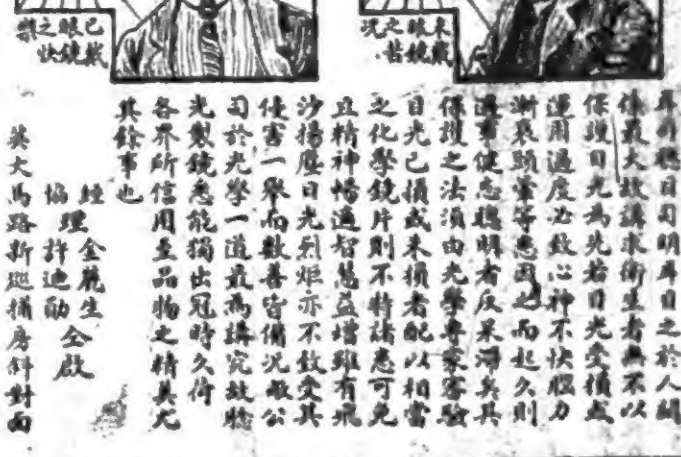 未戴眼鏡之苦況
已戴眼鏡之快樂
耳司聽目司明耳目之於人關
係最大故講求衛生者無不以
保護目光為先若目光受損或
運用過度必致心神不快腦力
漸衰頭暈等患因之而起久則
遇事健忘聰明者反呆滯矣其
保護之法須由光學專家察驗
目光已損或未損者配以相當
之化學鏡片則不特諸患可免
且精神暢適智慧益增雖有飛
沙揚塵日光烈炬亦不致受其
侵害一舉而數善皆備況敝公
司於光學一道最為講究故驗
光製鏡悉能獨出冠時久荷
各界所信用至品物之精美尤
其餘事也
經理金麗生
協理許迪勛
仝啟
英大馬路新巡捕房斜對面